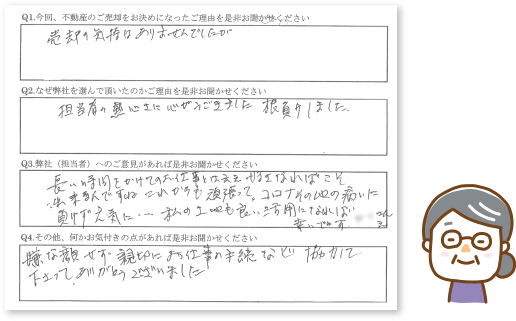 Q1.今回、不動産のご売却をお決めになったご理由を是非お聞かせください
売却の気持はありませんでしたが
Q2.なぜ弊社を選んで頂いたのかご理由を是非お聞かせください
担当者の熱心さに心がうごきました 根負けしました。
Q3.弊社（担当者）へのご意見があれば是非お聞かせください
長い時間をかけてのお仕事とは云え
出来るんですね これからも頑張って、コロナその他の病いに
負けず元気に… 私の土地も良い活用になれば
幸いです。
Q4.その他、何かお気付きの点があれば是非お聞かせください
嫌な顔せず 親切に お仕事の手続など 協力して
下さって ありがとうございました